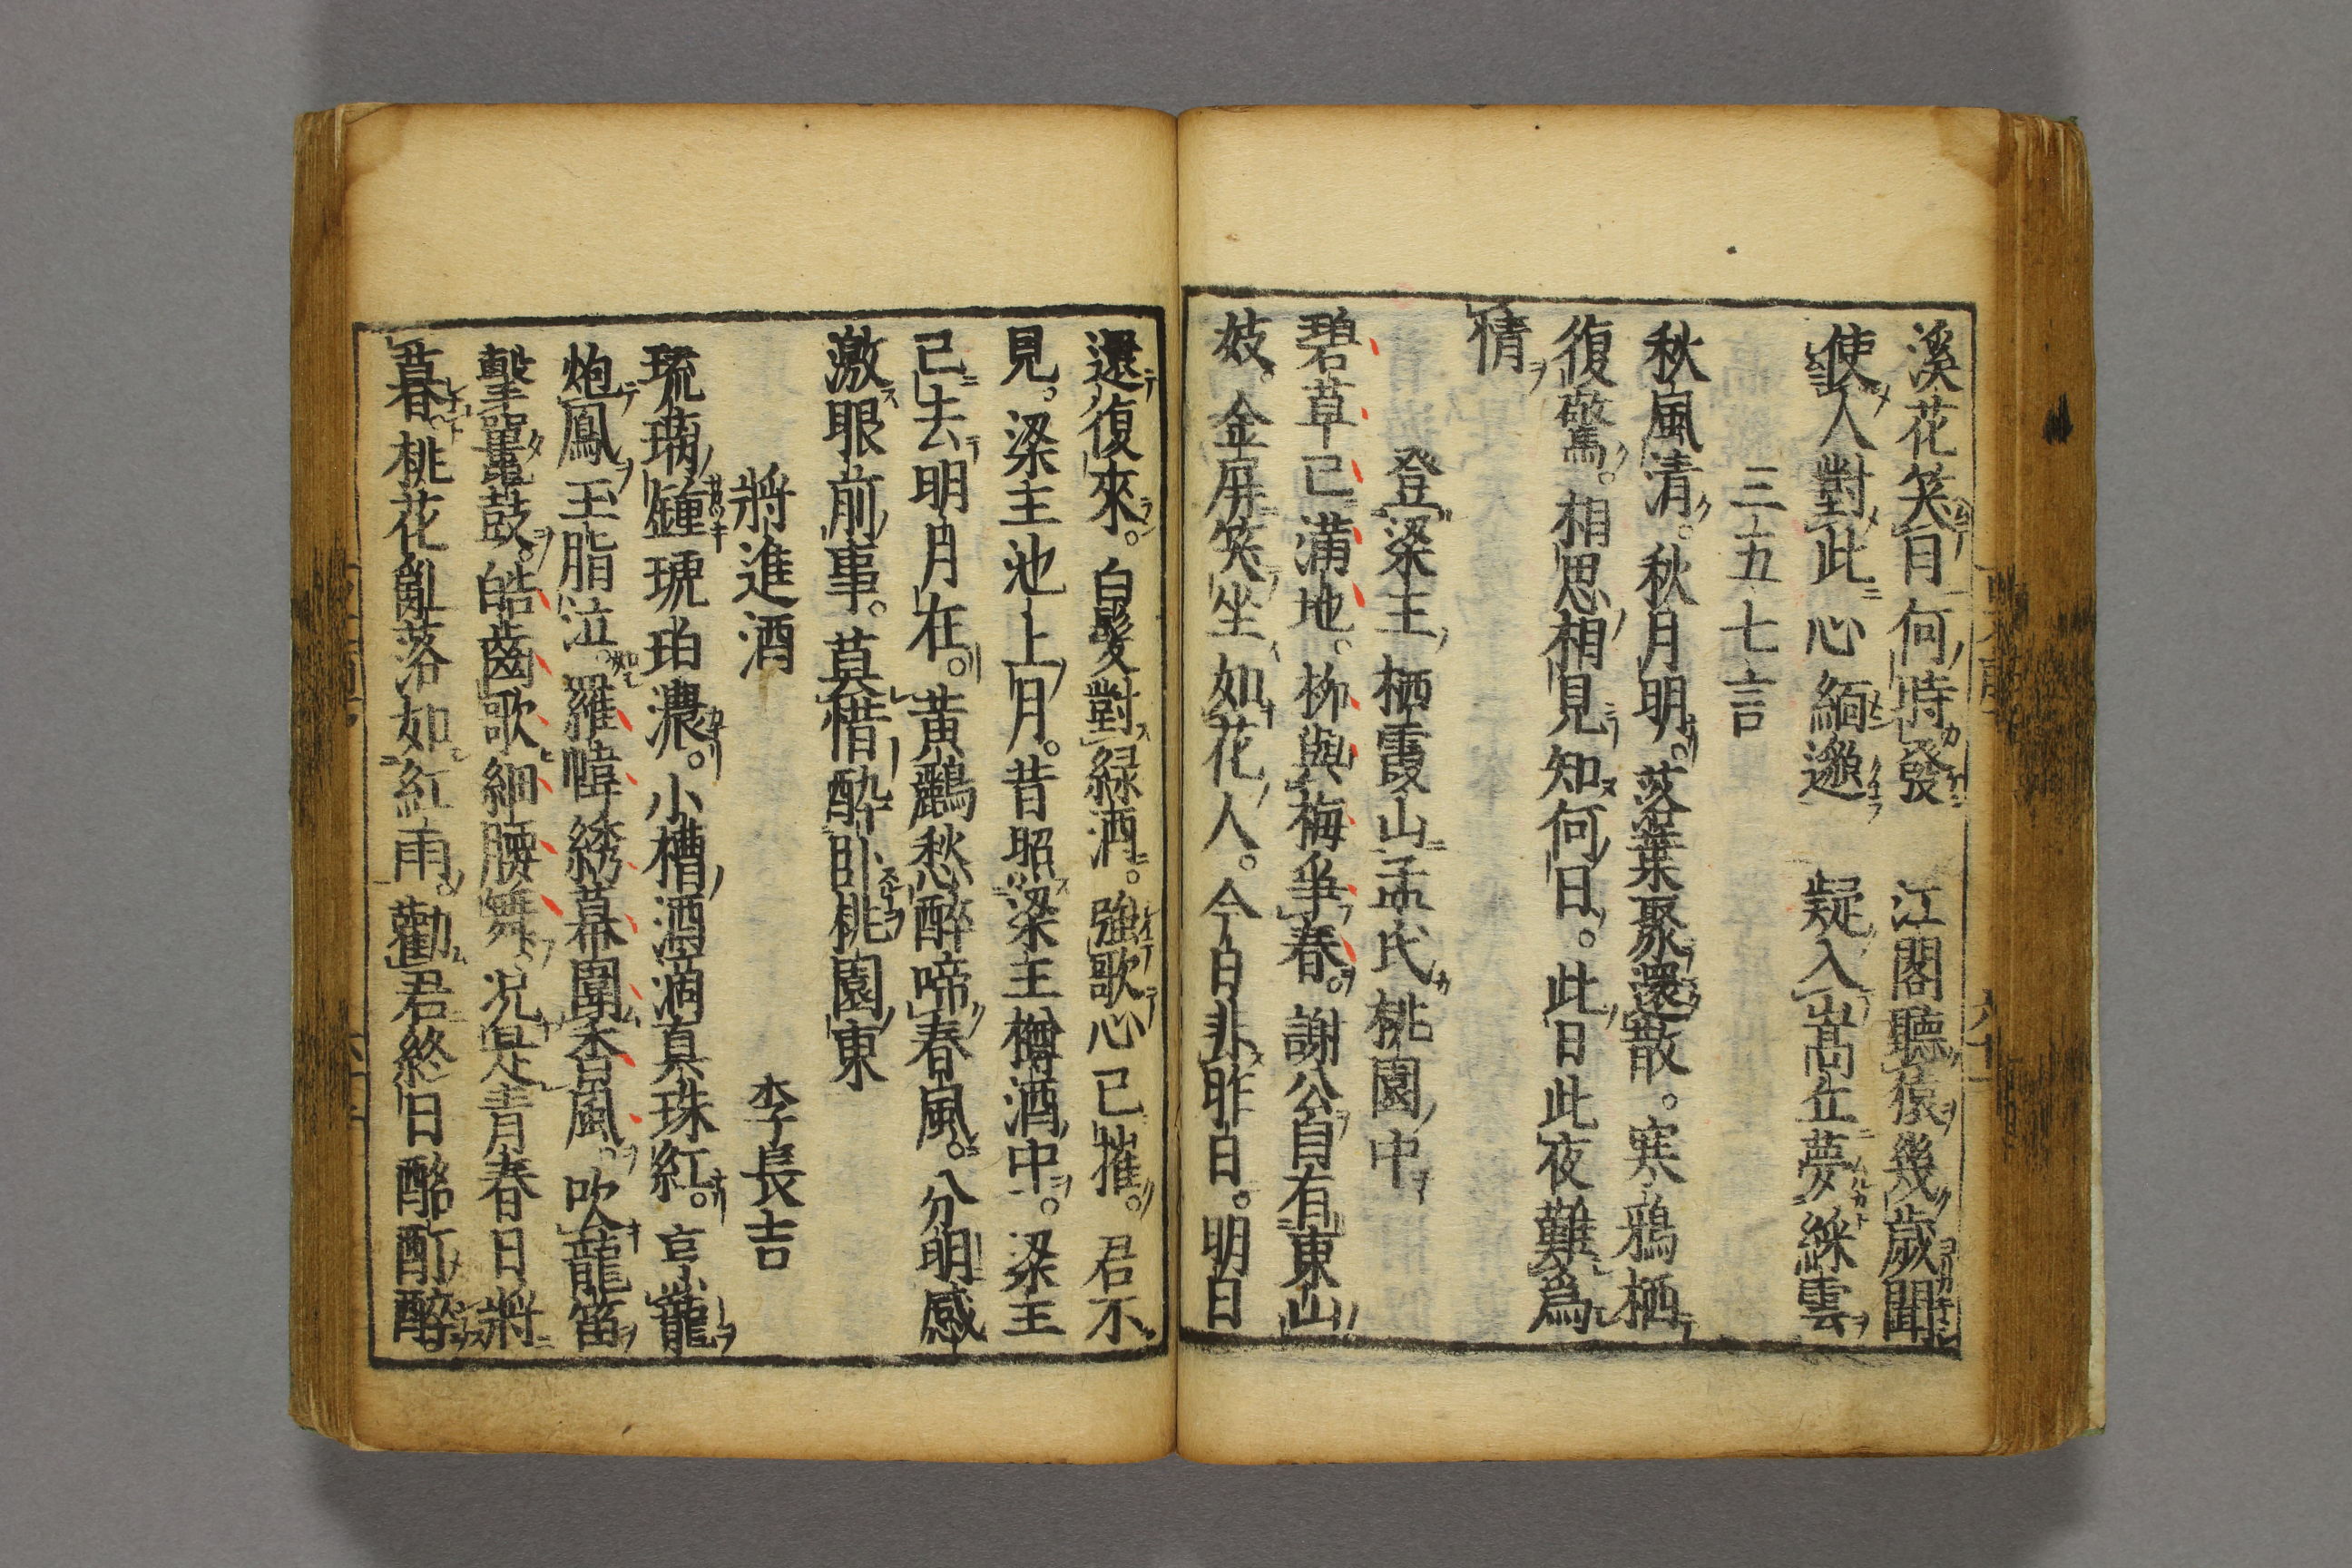 溪花笑日何時發　江閣聽猿幾歲聞
使人對此心緬邈　疑入嵩丘夢綵雲
三五七言
秋風清。秋月明。落葉聚還散。寒鴉栖
復驚。相思相見知何日。此日此夜難爲
情
登梁王栖霞山孟氏桃園中
碧草已滿地。柳與梅爭春。謝公自有東山
妓。金屏笑坐如花人。今日非昨日。明日
還復來。白髮對緑酒。強歌心已摧。君不
見。梁王池上月。昔照梁王樽酒中。梁王
已去明月在。黃鸝愁醉啼春風。分明感
激眼前事。莫惜醉臥桃園東
將進酒　李長吉
琉璃鍾琥珀濃。小槽酒滴真珠紅。烹龍
炮鳳玉脂泣。羅幃綉幕圍香風。吹龍笛
擊鼉鼓。皓齒歌細腰舞。况是青春日將
暮。桃花亂落如紅雨。勸君終日酩酊醉。